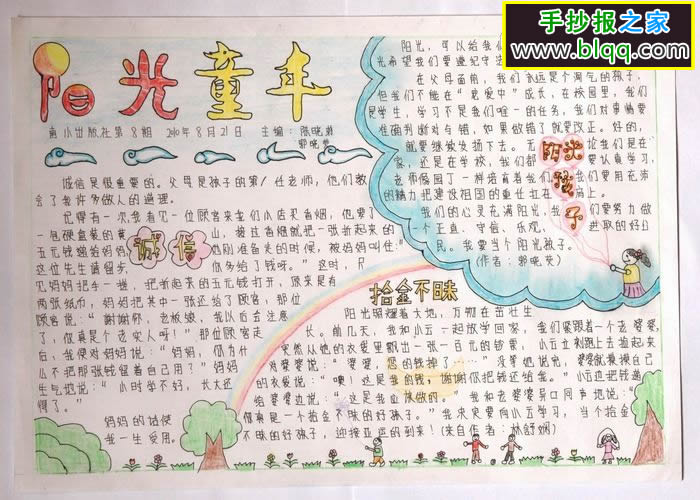 手抄报之家
www.blqq.com
阳光童年
南小出版社第8期 2010年8月21日 主编:陈晓琪
郭晓荧
诚信是很重要的。父母是孩子的第1任老师,他们教
会了我许多做人的道理。
记得有一次,我看见一位顾客来我们小店买香烟,他要了
一包硬盒装的黄山,接过香烟就把
五元钱递给妈妈
刚准备走的时候,被妈妈叫住:“
这位先生请留步,你多给了钱呀。”这时,只
见妈妈把手一搓,把折起来的五元钱打开,原来是有
两张纸币,妈妈把其中一张还给了顾客,那位
顾客说:“谢谢你,老板娘,我以后会注意
了,你真是个老实人呀!”那位顾客走
后,我便对妈妈说:“妈妈,你为什
么不把那张钱留着自己用?”妈妈
生气地说:“小时学不好,长大还
得了。”
妈妈的话使
我一生受用。
诚信
阳光,可以给我们
光希望我们要遵纪守法
在父母面前,我们永远是个淘气的孩子,
但我们不能在“溺爱中”成长,在校园里,我们
是学生,学习不是我们唯一的任务,我们对事情要
准确判断对与错,如果做错了就要改正。好的,
就要继续发扬下去。无论我们是在
家,还是在学校,我们都要认真学习,
老师像园丁一样培育着我们,我们要用充沛
的精力把建设祖国的重任扛在肩上。
我们的心灵充满阳光,我们要努力做
一个正直、守信、乐观、进取的好公
民。我要当个阳光孩子。
(作者:郭晓荧)
阳光孩子
拾金不昧
阳光照耀着大地,万物在茁壮生
长。前几天,我和小云一起放学回家,我们紧跟着一个老婆婆,
突然从她的衣袋里飘出一张一百元的钞票,小云立刻跑上去捡起来
对婆婆说:“婆婆,您的钱掉了……”没等她说完,婆婆就摸摸自己
的衣袋说:“噢!这是我的钱,谢谢你把钱还给我。”小云边把钱递
给婆婆边说:“这是我应该做的。”我和老婆婆异口同声地说:“
你真是一个拾金不昧的好孩子。”我决定要向小云学习,当个拾金
不昧的好孩子,迎接亚运的到来!(来自作者:林舒娴)